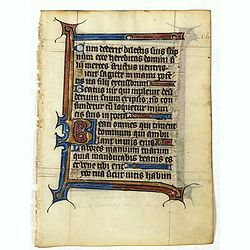 Cum dederit dilectis suis somp
num ecce hereditas domini fi
lii merces fructus uentris
Sicut sagitte in manu poten
tis ita filii excussorum
Beatus uir qui impleuit desi
derium suum ex ipsis non con
fundetur cum loquetur inimi
cis suis in porta
Beati omnes qui timent
dominum qui ambu
lant in uiis eius
Labores manuum tuarum
quia manducabis beatus es
et bene tibi erit
Uxor tua sicut uitis habun